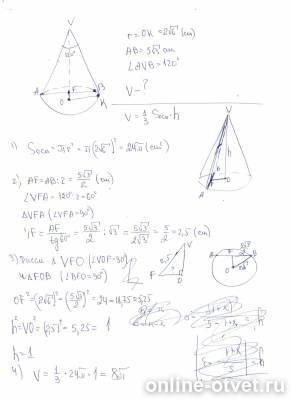 V
120°
A
B
O
K
r = OK = 2√6 (cm)
AB = 5√3 cm
∠AVB = 120°
V - ?
V = 1/3 Sосн · h
V
h
A
O
1) Sосн = πr² = π(2√6)² = 24π (cm²)
2) AF = AB : 2 = 5√3/2 (cm)
∠VFA = 120° : 2 = 60°
ΔVFA (∠VFA = 90°)
VF = AF/tg60° = 5√3/2 : √3 = 5√3/2√3 = 5/2 = 2,5 (cm)
3) Рассм. Δ VFO (∠VOF = 90°)
и ΔFOB (∠BFO = 90°)
V
F
O
A
B
OF² = (2√6)² - (5√3/2)² = 24 - 18,75 = 5,25
h² = VO² = (2,5)² - 5,25 = 1
h = 1
4) V = 1/3 · 24π · 1 = 8π
online-otvet.ru